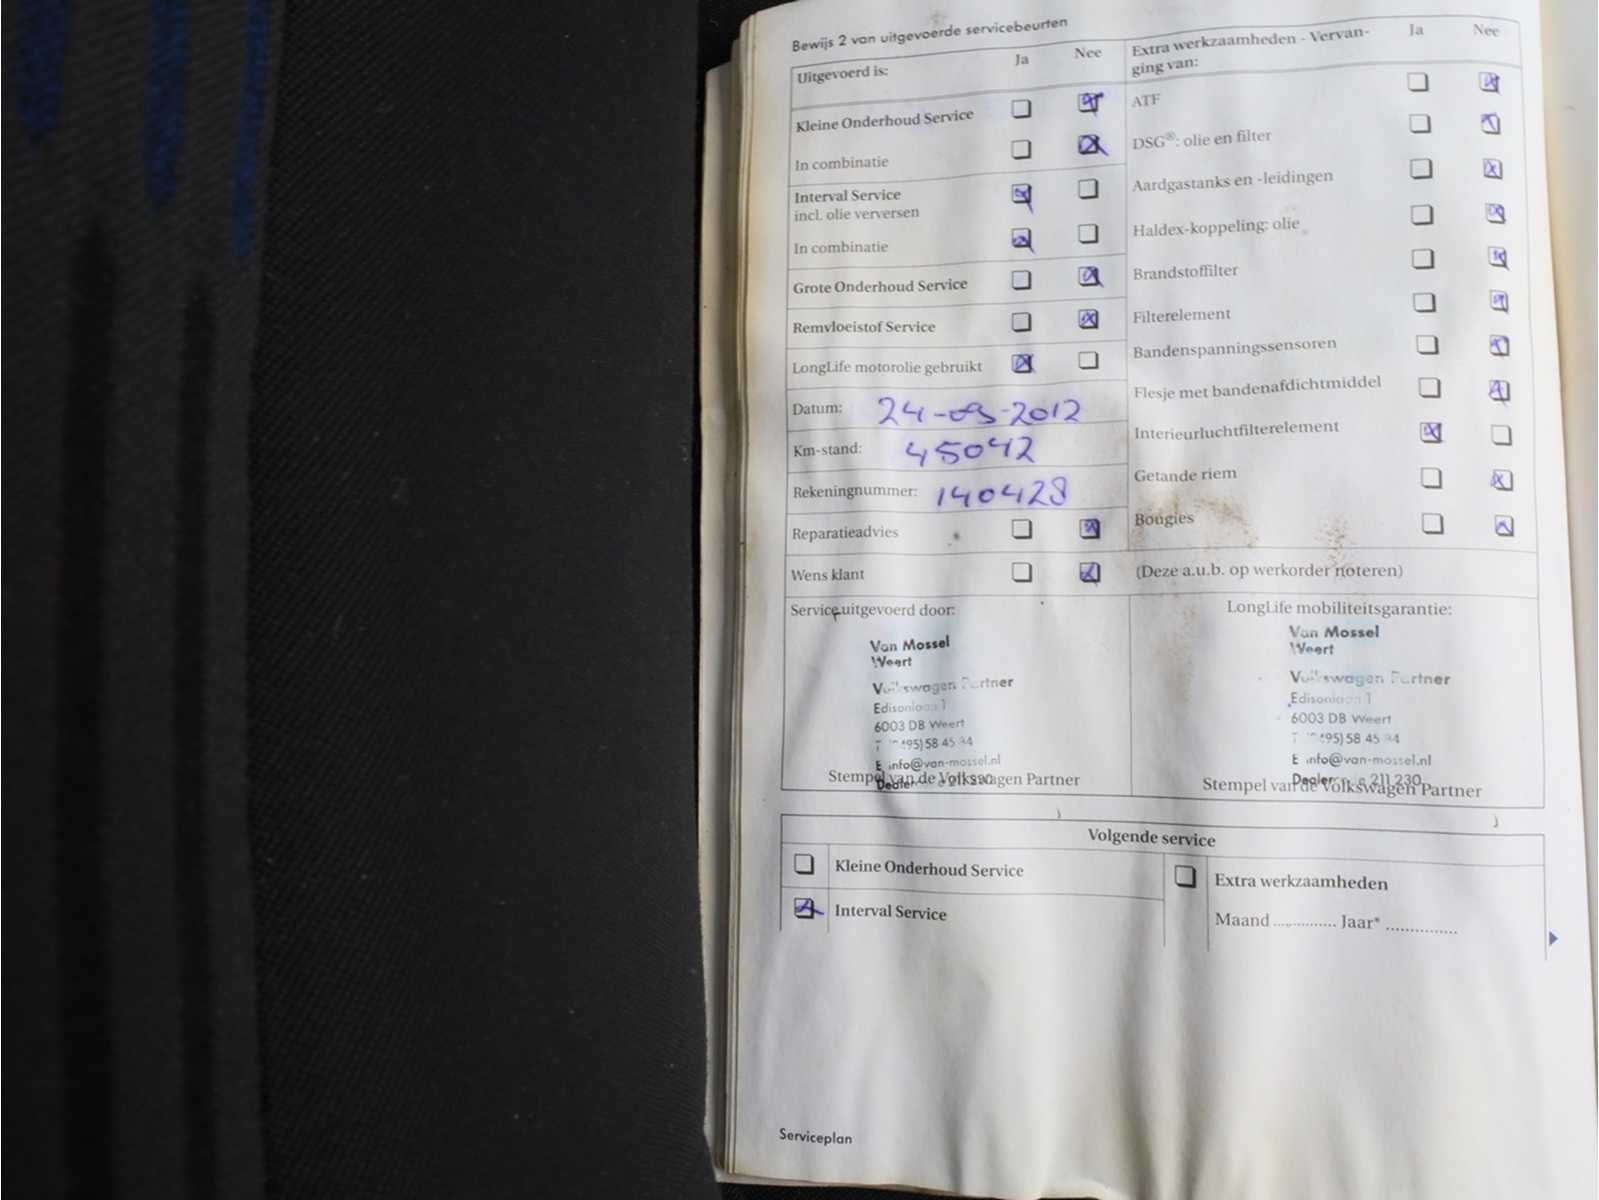 Bewijs 2 van uitgevoerde servicebeurten
Uitgevoerd is: Ja Nee
Kleine Onderhoud Service
In combinatie
Interval Service
incl. olie verversen
In combinatie
Grote Onderhoud Service
Remvloeistof Service
LongLife motorolie gebruikt
Datum: 24-09-2012
Km-stand: 45042
Rekeningnummer: 140428
Reparatieadvies
Wens klant
Extra werkzaamheden - Vervan-
ging van: Ja Nee
ATF
DSG®: olie en filter
Aardgastanks en -leidingen
Haldex-koppeling: olie
Brandstoffilter
Filterelement
Bandenspanningssensoren
Flesje met bandenafdichtmiddel
Interieurluchtfilterelement
Getande riem
Bougies
(Deze a.u.b. op werkorder noteren)
Service uitgevoerd door:
Van Mossel
Weert
Volkswagen Partner
Edisonlaan 1
6003 DB Weert
58 45
E info@van-mossel.nl
Dealer
Stempel van de Volkswagen Partner
LongLife mobiliteitsgarantie:
Van Mossel
Weert
Volkswagen Partner
Edisonlaan 1
6003 DB Weert
58 45
E info@van-mossel.nl
Dealer 211 230
Stempel van de Volkswagen Partner
Volgende service
Kleine Onderhoud Service
Interval Service
Extra werkzaamheden
Maand ............. Jaar* ...............
Serviceplan